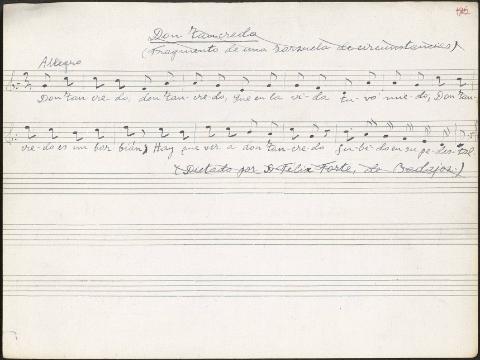 Don Tancredo
(Fragmento de una zarzuela de circunstancias)
Allegro
Don Tan-cre-do, don Tan-cre-do, que en la vi-da tu-vo mie-do, Don Tan-
cre-do es un bar bián, Hay que ver a don Tan-cre-do su-bi-do en su pe-des-tal
(Dictado por D. Félix Forte, de Badajoz.)